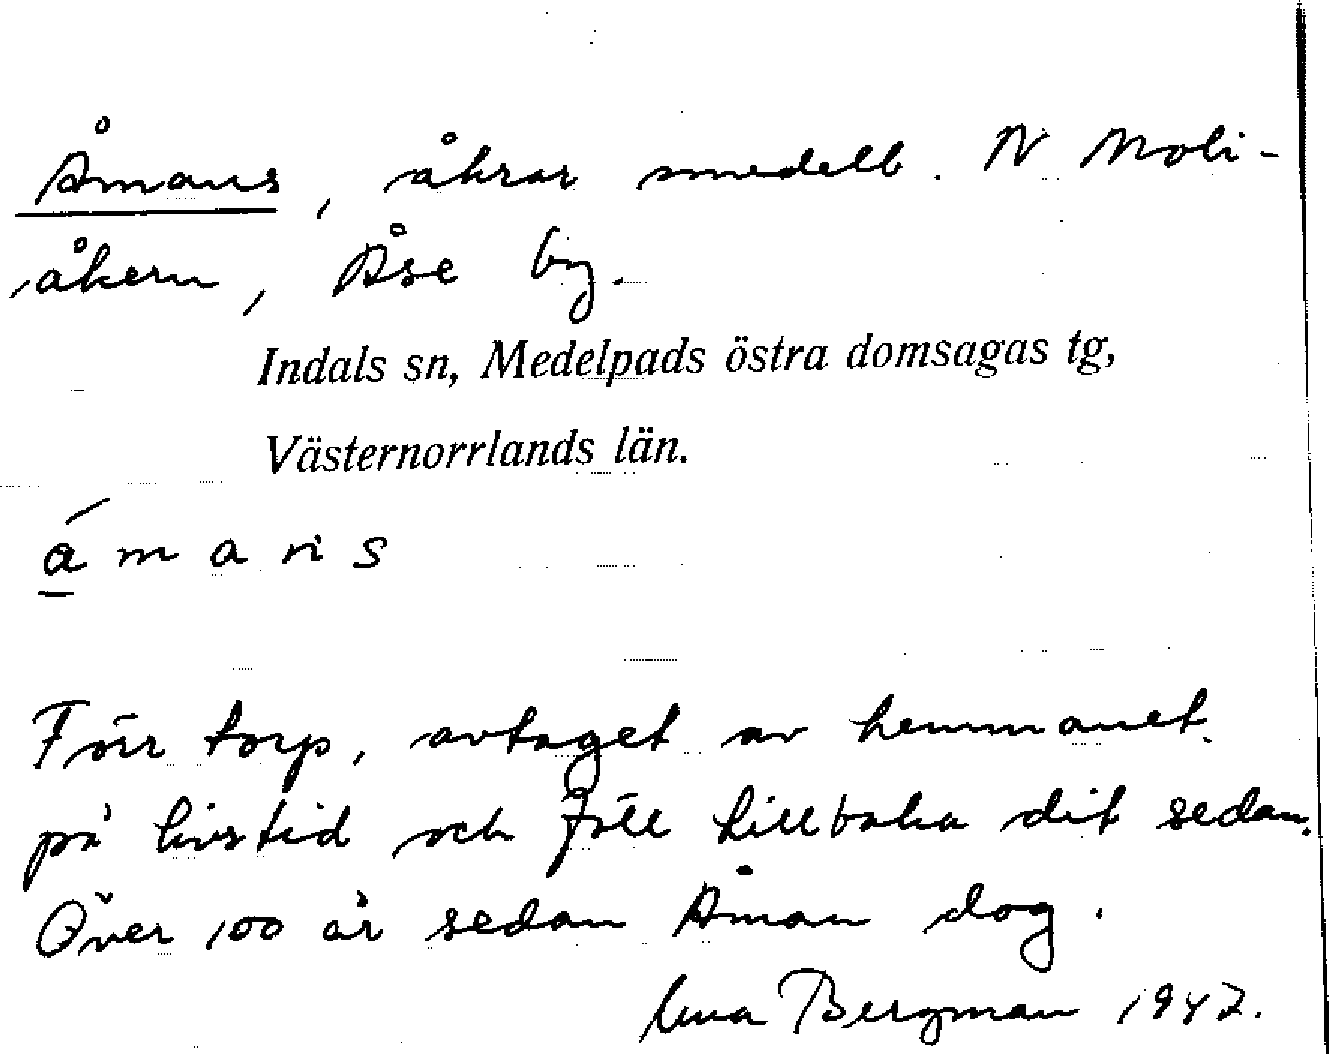 Åmans, åkrar smedelb. N Moli-
åkern, Åse by.
Indals sn, Medelpads östra domsagas tg,
Västernorrlands län.
á m a n s
Förr torp, avtaget av hemmanet
på livstid och föll tillbaka dit sedan.
Över 100 år sedan Åman dog.
Bergman 1947.